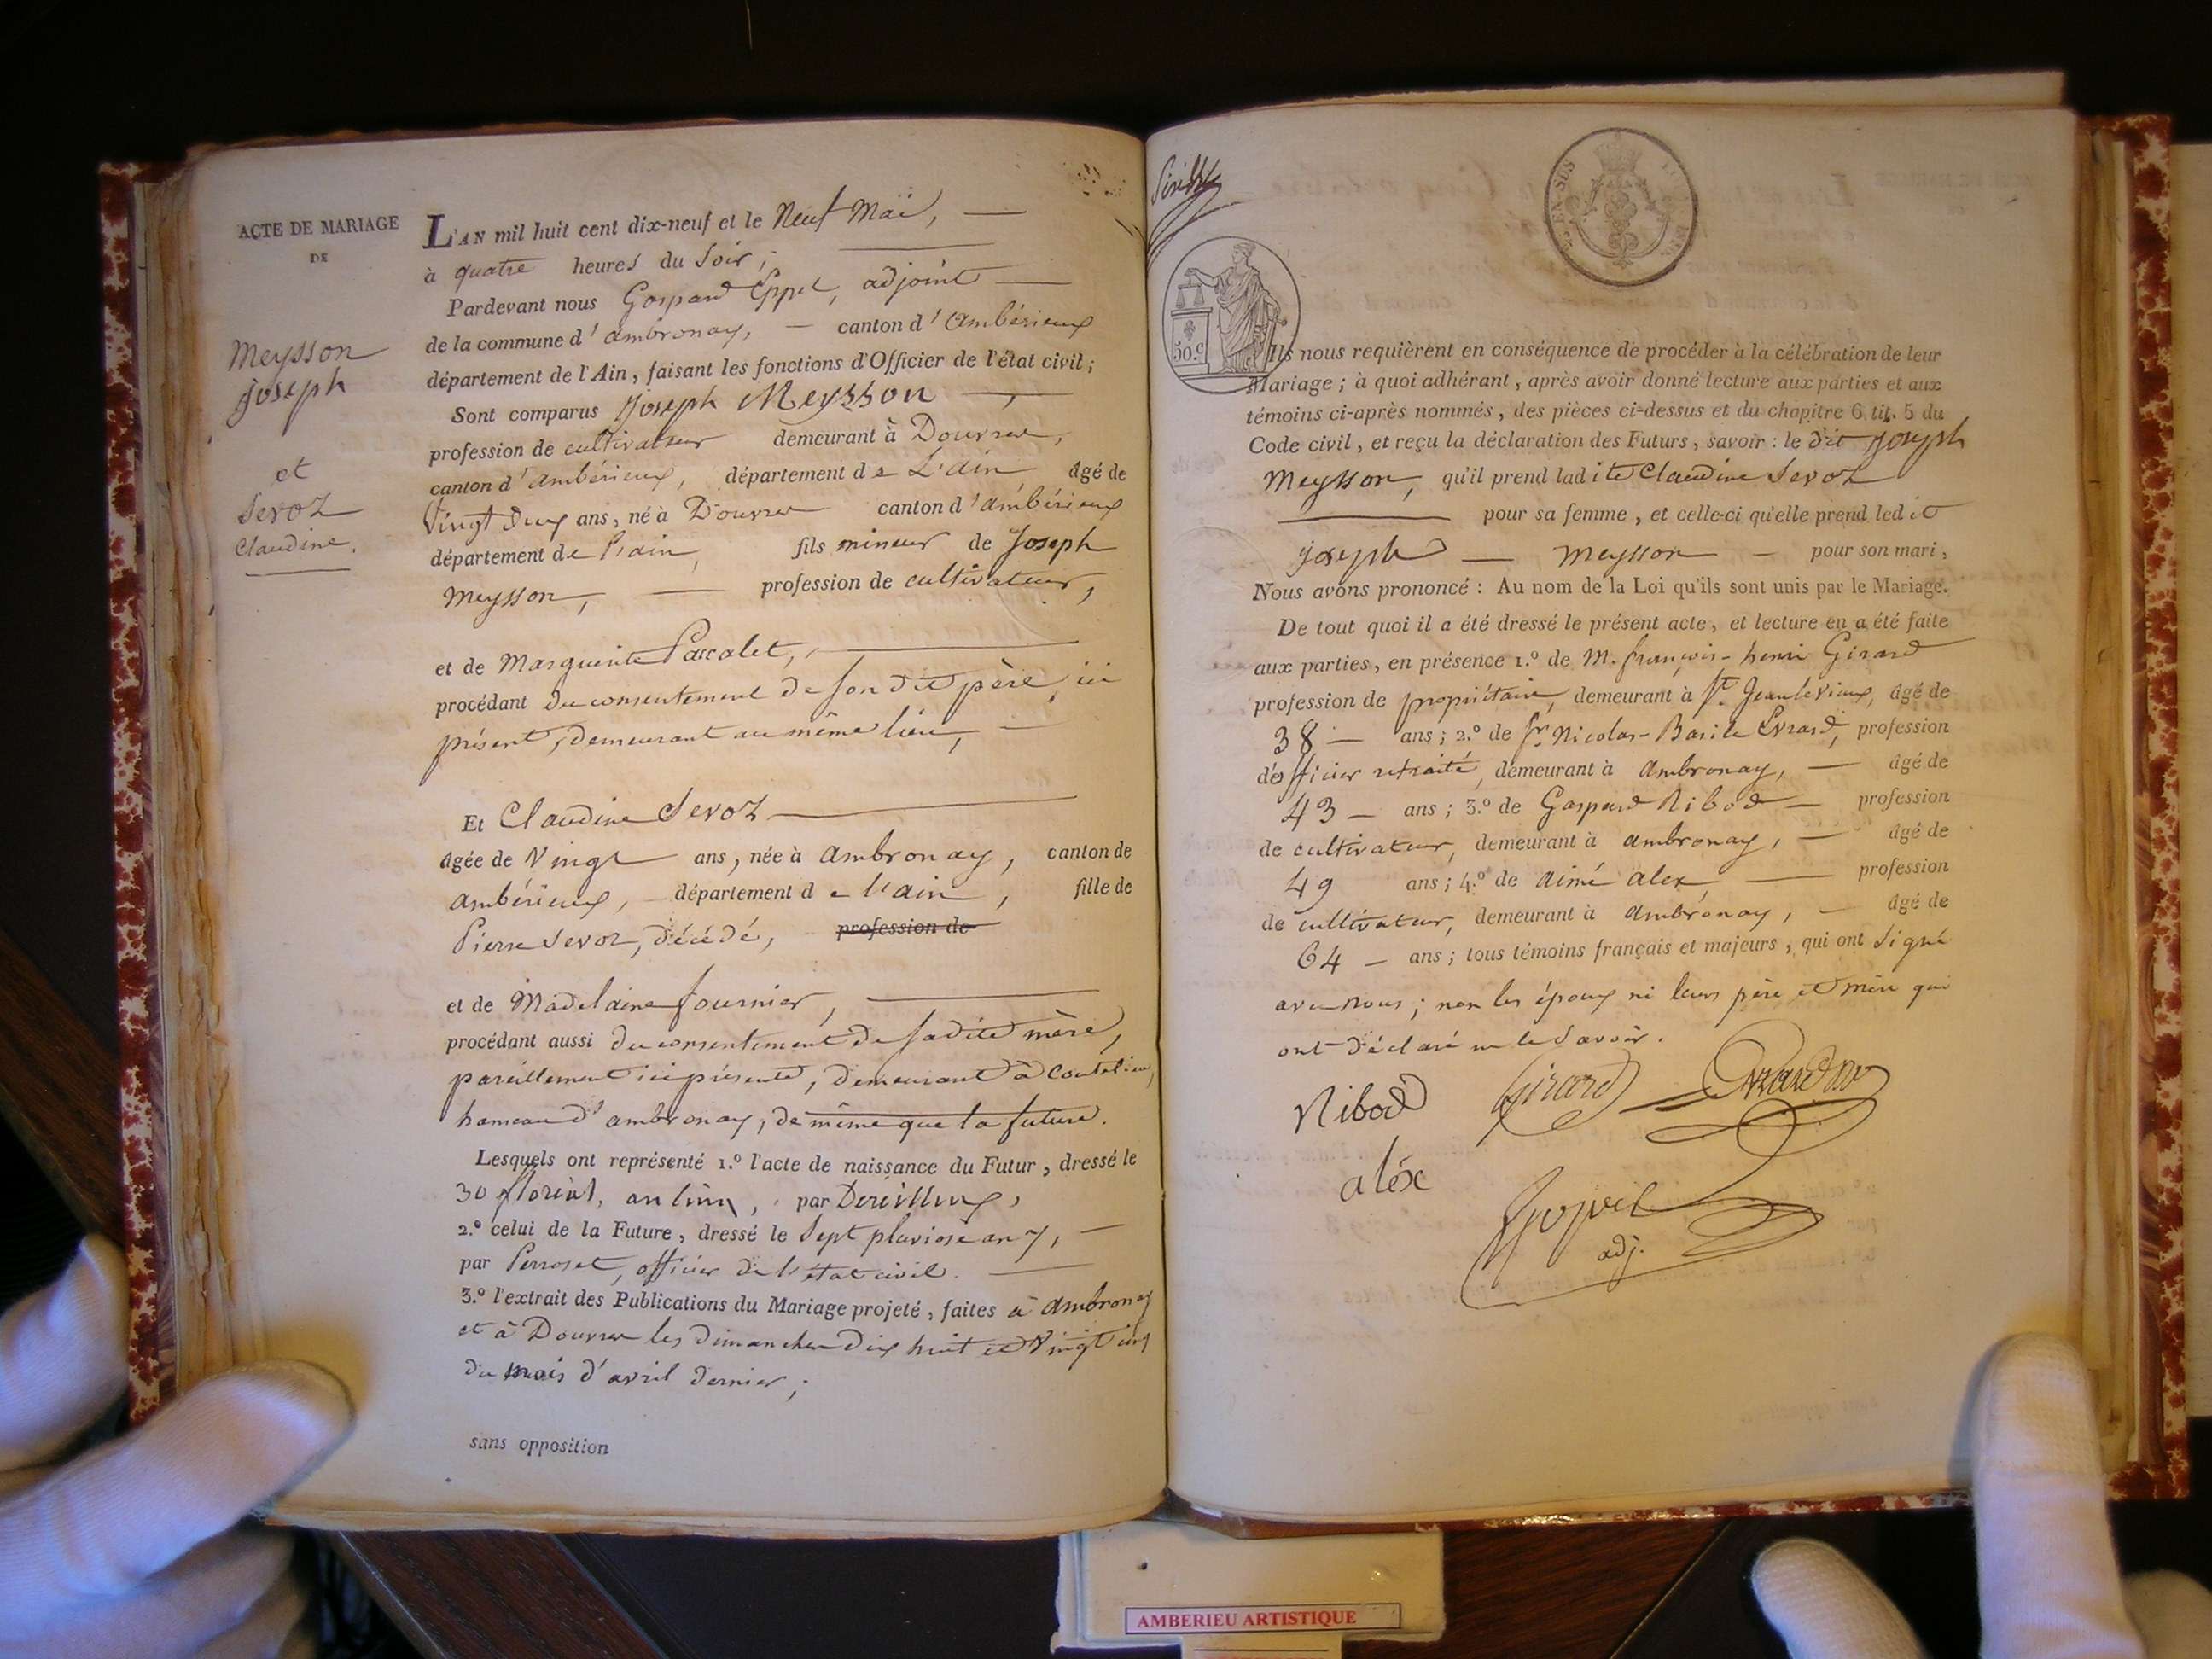 ACTE DE MARIAGE
DE
Meysson
Joseph
et
Sevoz
Claudine.
L'AN mil huit cent dix-neuf et le Neuf Mai,
à quatre heures du Soir;
Pardevant nous Gaspard adjoint
de la commune d'ambronay, canton d'Ambérieux
département de l'Ain, faisant les fonctions d'Officier de l'état civil;
Sont comparus Joseph Meysson
profession de cultivateur demeurant à Douvres,
canton d'ambérieux, département de L'ain âgé de
Vingt Deux ans, né à Douvres canton d'ambérieux
département de l'ain, fils mineur de Joseph
Meysson, profession de cultivateur,
et de Marguerite Pascalet,
procédant du consentement de son dit père, ici
présent, demeurant au même lieu,
Et Claudine Sevoz
âgée de Vingt ans, née à Ambronay, canton de
Ambérieux, département de l'ain, fille de
Pierre Sevoz, décédé, profession de
et de Madelaine fournier,
procédant aussi du consentement de sadite mère,
pareillement ici présente, demeurant à Coutelieu,
hameau d'ambronay, de même que la future.
Lesquels ont représenté 1.º l'acte de naissance du Futur, dressé le
30 floréal, an cinq, par
2.º celui de la Future, dressé le Sept pluviose an 7,
par Perroset, officier de l'état civil.
3.º l'extrait des Publications du Mariage projeté, faites à Ambronay
et à Douvres les dimanches dix huit et Vingt cinq
du mois d'avril dernier;
sans opposition
50.c
EN SUS
Ils nous requièrent en conséquence de procéder à la célébration de leur
Mariage; à quoi adhérant, après avoir donné lecture aux parties et aux
témoins ci-après nommés, des pièces ci-dessus et du chapitre 6 tit. 5 du
Code civil, et reçu la déclaration des Futurs, savoir: le dit Joseph
Meysson, qu'il prend ladite Claudine Sevoz
pour sa femme, et celle-ci qu'elle prend ledit
Joseph Meysson pour son mari,
Nous avons prononcé: Au nom de la Loi qu'ils sont unis par le Mariage.
De tout quoi il a été dressé le présent acte, et lecture en a été faite
aux parties, en présence 1.º de M. françois-henri Girard
profession de propriétaire, demeurant à St. Jean le Vieux, âgé de
38 ans; 2.º de Sr. Nicolas-Basile Evrard, profession
d'officier retraité, demeurant à Ambronay, âgé de
43 ans; 3.º de Gaspard Ribod profession
de cultivateur, demeurant à ambronay, âgé de
49 ans; 4.º de aimé alex profession
de cultivateur, demeurant à Ambronay, âgé de
64 ans; tous témoins français et majeurs, qui ont Signé
avec nous; non les époux ni leurs père et mère qui
ont déclaré ne le Savoir.
Ribod Girard
alex
adj.
AMBERIEU ARTISTIQUE